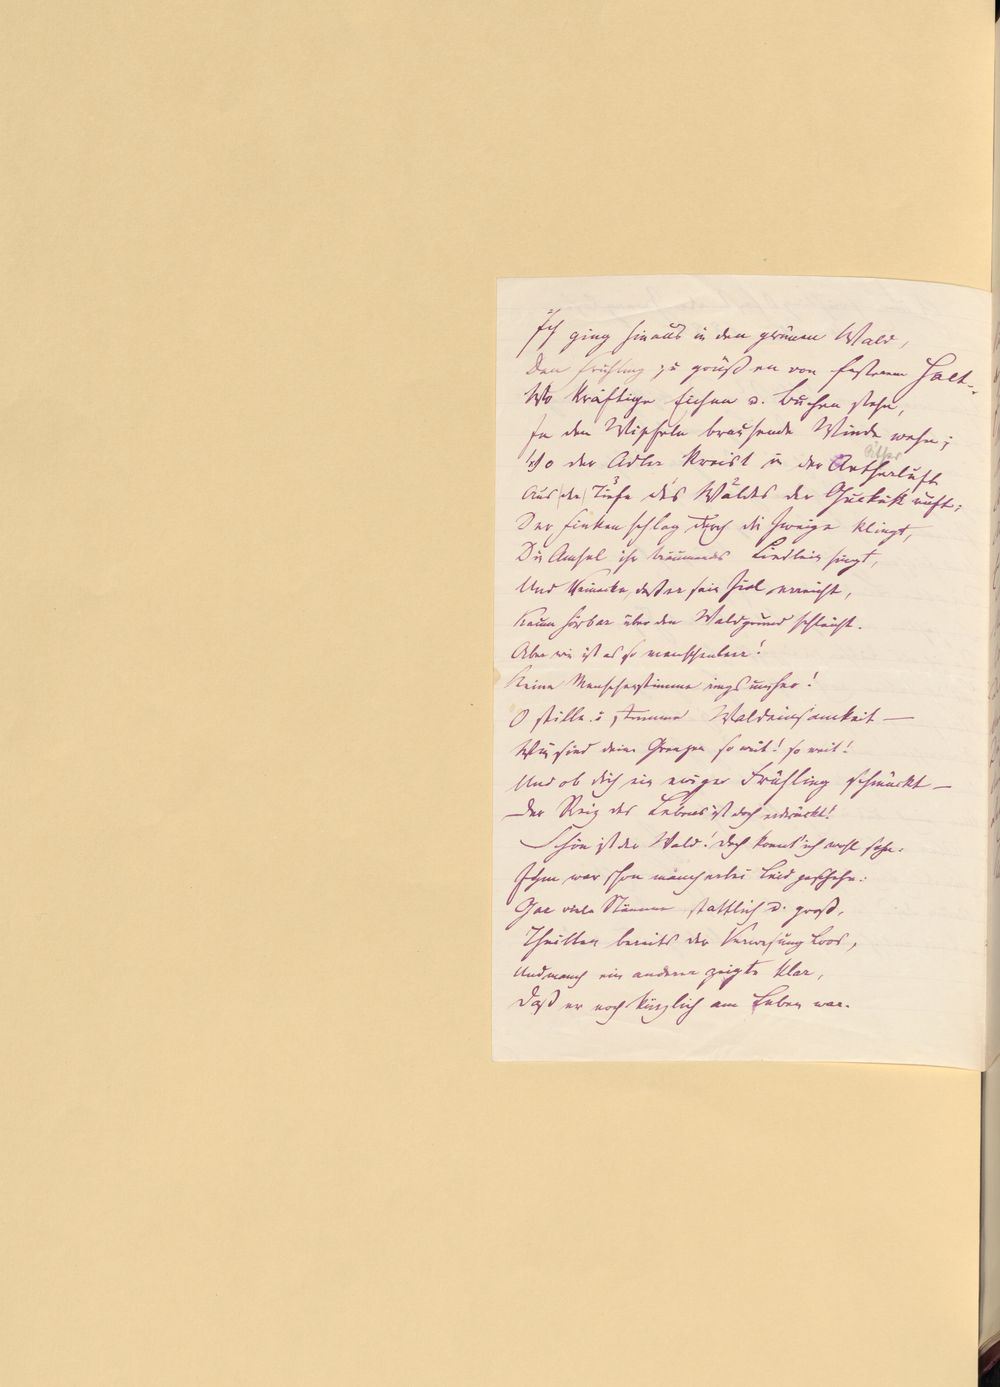 Ich ging hinaus in den grünen Wald,
Den Frühling zu grüßen von festerem Halt.
Wo kräftige Eichen u. Buchen stehn,
In den Wipfeln brausende Winde wehn;
Wo der Adler kreist in der Aetherluft
Aus der Tiefe des Waldes der Guckuk ruft;
Der Finkenschlag durch die Zweige klingt,
Die Amsel ihr träumendes Liedlein singt,
Und Reinecke, daß er sein Ziel erreicht,
Kaum hörbar über den Waldgrund schleicht.
Aber wie ist es so menschenleer!
Keine Menschenstimme rings umher!
O stille u. stumme Waldeinsamkeit —
Wie sind deine Grenzen so weit! so weit!
Und ob dich ein ewiger Frühling schmückt —
Der Reiz des Lebens ist doch erdrückt!
Schön ist der Wald! doch konnt' ich wohl sehn.
Ihm war schon mancherlei Leid geschehn:
Gar viele Stämme stattlich u. groß,
Theilten bereits der Verwesung Loos,
Und manch ein anderer zeigte klar,
Daß er noch kürzlich am Leben war.